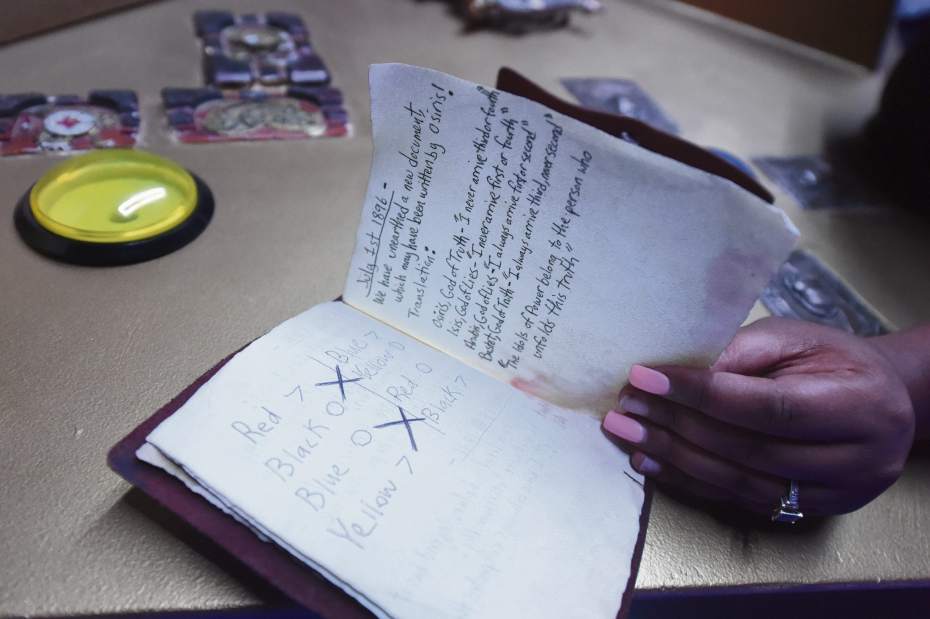 July 1st 1896 -
We have unearthed a new document,
which may have been written by Osiris!
Translation:
Osiris, God of Truth - I never arrive third or fourth
Isis, God of Lies - "I never arrive first or fourth"
Anubis, God of Lies - "I always arrive first or second"
Bastet, God of Truth - "I always arrive third, never second"
"The Idols of Power belong to the person who
unfolds this truth"
Red > Blue >
Black O Yellow O
Blue O Red O
Yellow > Black >